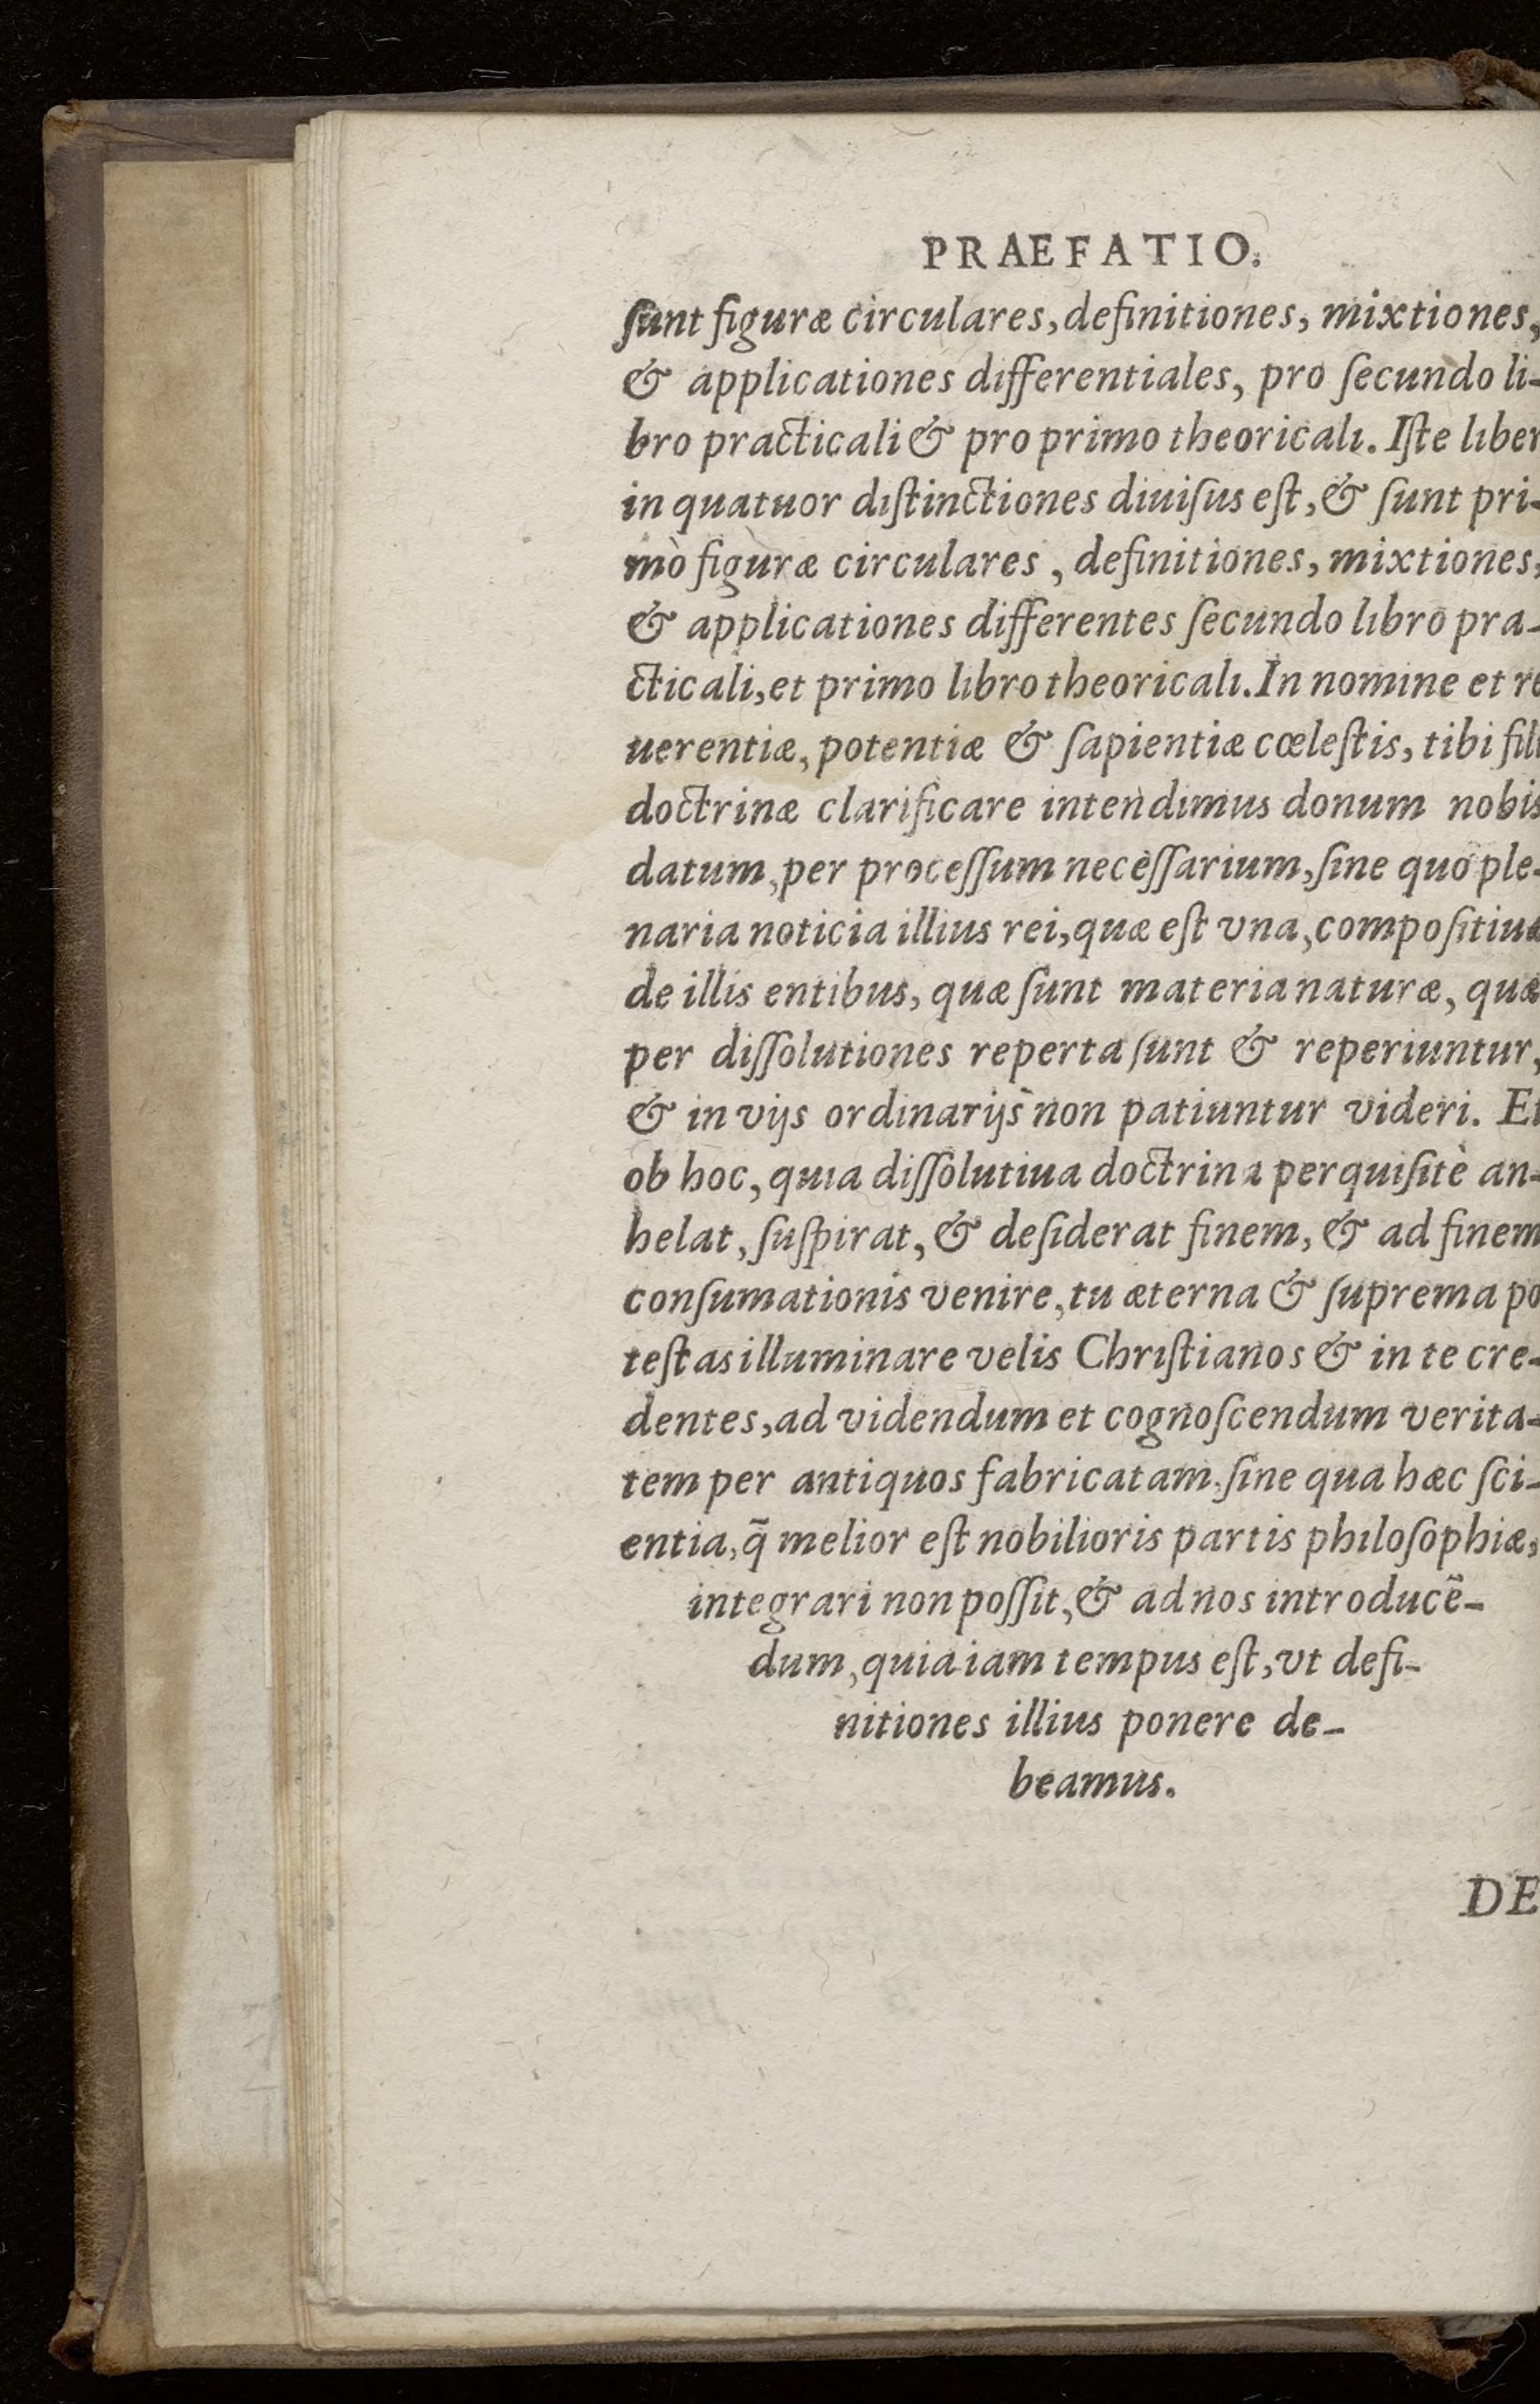 PRAEFATIO.
ſunt figuræ circulares, definitiones, mixtiones,
& applicationes differentiales, pro ſecundo li-
bro practicali & pro primo theoricali. Iſte liber
in quatuor diſtinctiones diuiſus eſt, & ſunt pri-
mò figuræ circulares, definitiones, mixtiones,
& applicationes differentes ſecundo libro pra-
cticali, et primo libro theoricali. In nomine et re
uerentiæ, potentiæ & ſapientiæ cœleſtis, tibi fili
doctrinæ clarificare intendimus donum nobis
datum, per proceſſum neceſſarium, ſine quo ple-
naria noticia illius rei, quæ eſt vna, compoſitiua
de illis entibus, quæ ſunt materia naturæ, quæ
per diſſolutiones reperta ſunt & reperiuntur,
& in vijs ordinarijs non patiuntur videri. Et
ob hoc, quia diſſolutiua doctrina perquiſitè an-
helat, ſuſpirat, & deſiderat finem, & ad finem
conſumationis venire, tu æterna & ſuprema po
teſtas illuminare velis Chriſtianos & in te cre-
dentes, ad videndum et cognoſcendum verita-
tem per antiquos fabricatam, ſine qua hæc ſci-
entia, q̃ melior eſt nobilioris partis philoſophiæ,
integrari non poſſit, & ad nos introducẽ-
dum, quia iam tempus eſt, vt defi-
nitiones illius ponere de-
beamus.
DE